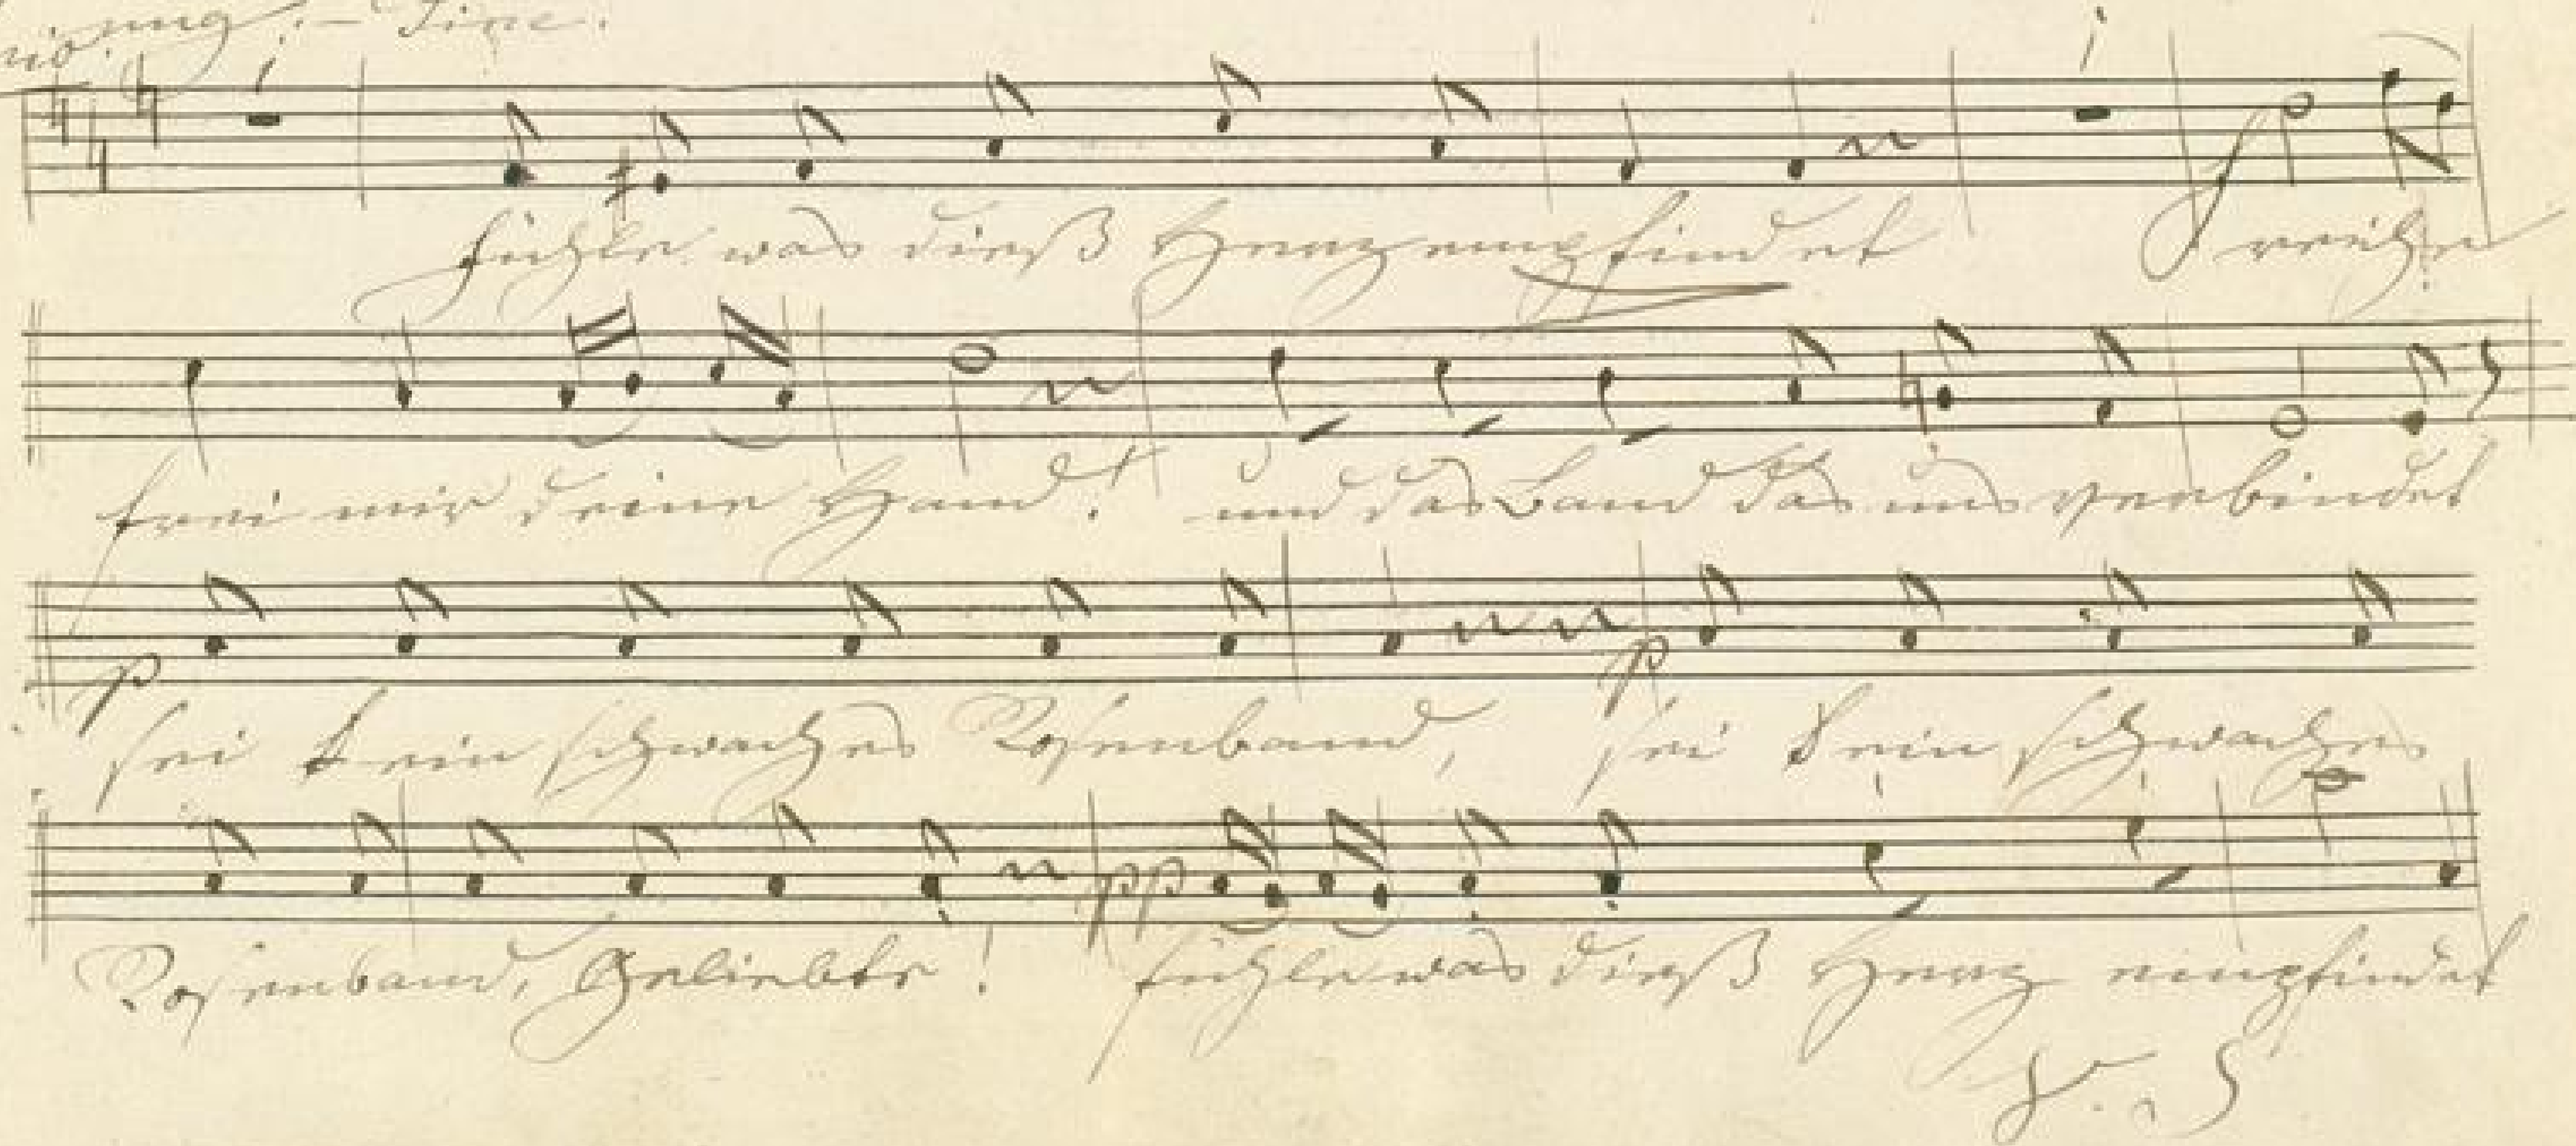 fühle was dieß Herz empfindet f reiche
frei mir deine Hand! und das Band das uns verbindet
p sei kein schwaches Rosenband, p sei kein schwaches
Rosenband, Geliebte! pp fühle was dieß Herz empfindet